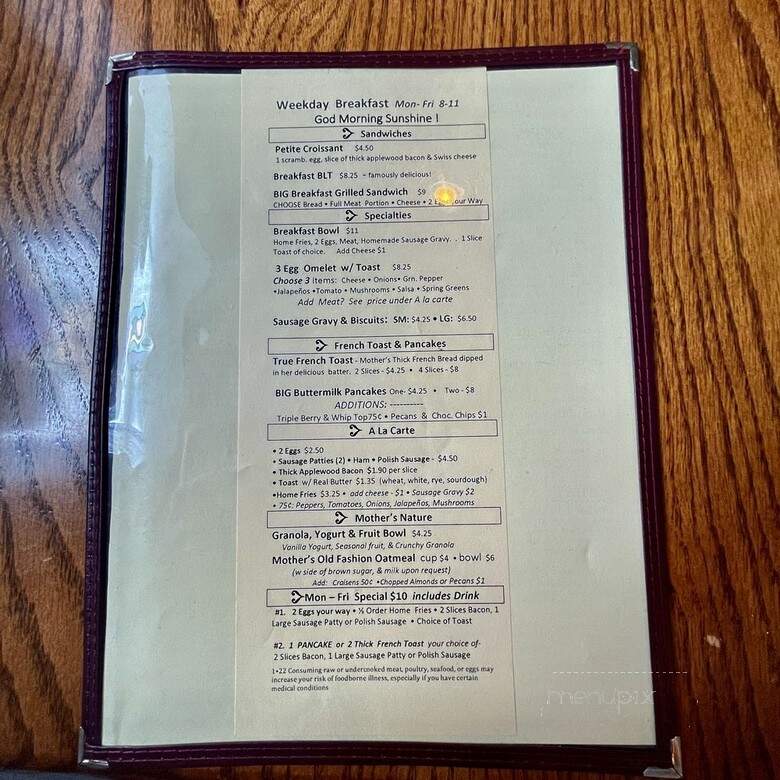 Weekday Breakfast Mon- Fri 8-11
God Morning Sunshine !
Sandwiches
Petite Croissant $4.50
1 scramb. egg, slice of thick applewood bacon & Swiss cheese
Breakfast BLT $8.25 - famously delicious!
BIG Breakfast Grilled Sandwich $9
CHOOSE Bread • Full Meat Portion • Cheese • 2 Your Way
Specialties
Breakfast Bowl $11
Home Fries, 2 Eggs, Meat, Homemade Sausage Gravy. . 1 Slice
Toast of choice. Add Cheese $1
3 Egg Omelet w/ Toast $8.25
Choose 3 Items: Cheese • Onions• Grn. Pepper
•Jalapeños •Tomato • Mushrooms • Salsa • Spring Greens
Add Meat? See price under A la carte
Sausage Gravy & Biscuits: SM: $4.25 • LG: $6.50
French Toast & Pancakes
True French Toast - Mother's Thick French Bread dipped
in her delicious batter. 2 Slices - $4.25 • 4 Slices - $8
BIG Buttermilk Pancakes One- $4.25 • Two - $8
ADDITIONS: ----------
Triple Berry & Whip Top75¢ • Pecans & Choc. Chips $1
A La Carte
• 2 Eggs $2.50
• Sausage Patties (2) • Ham • Polish Sausage - $4.50
• Thick Applewood Bacon $1.90 per slice
• Toast w/ Real Butter $1.35 (wheat, white, rye, sourdough)
•Home Fries $3.25 • add cheese - $1 • Sausage Gravy $2
• 75¢: Peppers, Tomatoes, Onions, Jalapeños, Mushrooms
Mother's Nature
Granola, Yogurt & Fruit Bowl $4.25
Vanilla Yogurt, Seasonal fruit, & Crunchy Granola
Mother's Old Fashion Oatmeal cup $4 • bowl $6
(w side of brown sugar, & milk upon request)
Add: Craisens 50¢ •Chopped Almonds or Pecans $1
Mon – Fri Special $10 includes Drink
#1. 2 Eggs your way • ½ Order Home Fries • 2 Slices Bacon, 1
Large Sausage Patty or Polish Sausage • Choice of Toast
#2. 1 PANCAKE or 2 Thick French Toast your choice of-
2 Slices Bacon, 1 Large Sausage Patty or Polish Sausage
1-22 Consuming raw or undercooked meat, poultry, seafood, or eggs may
increase your risk of foodborne illness, especially if you have certain
medical conditions
menupix